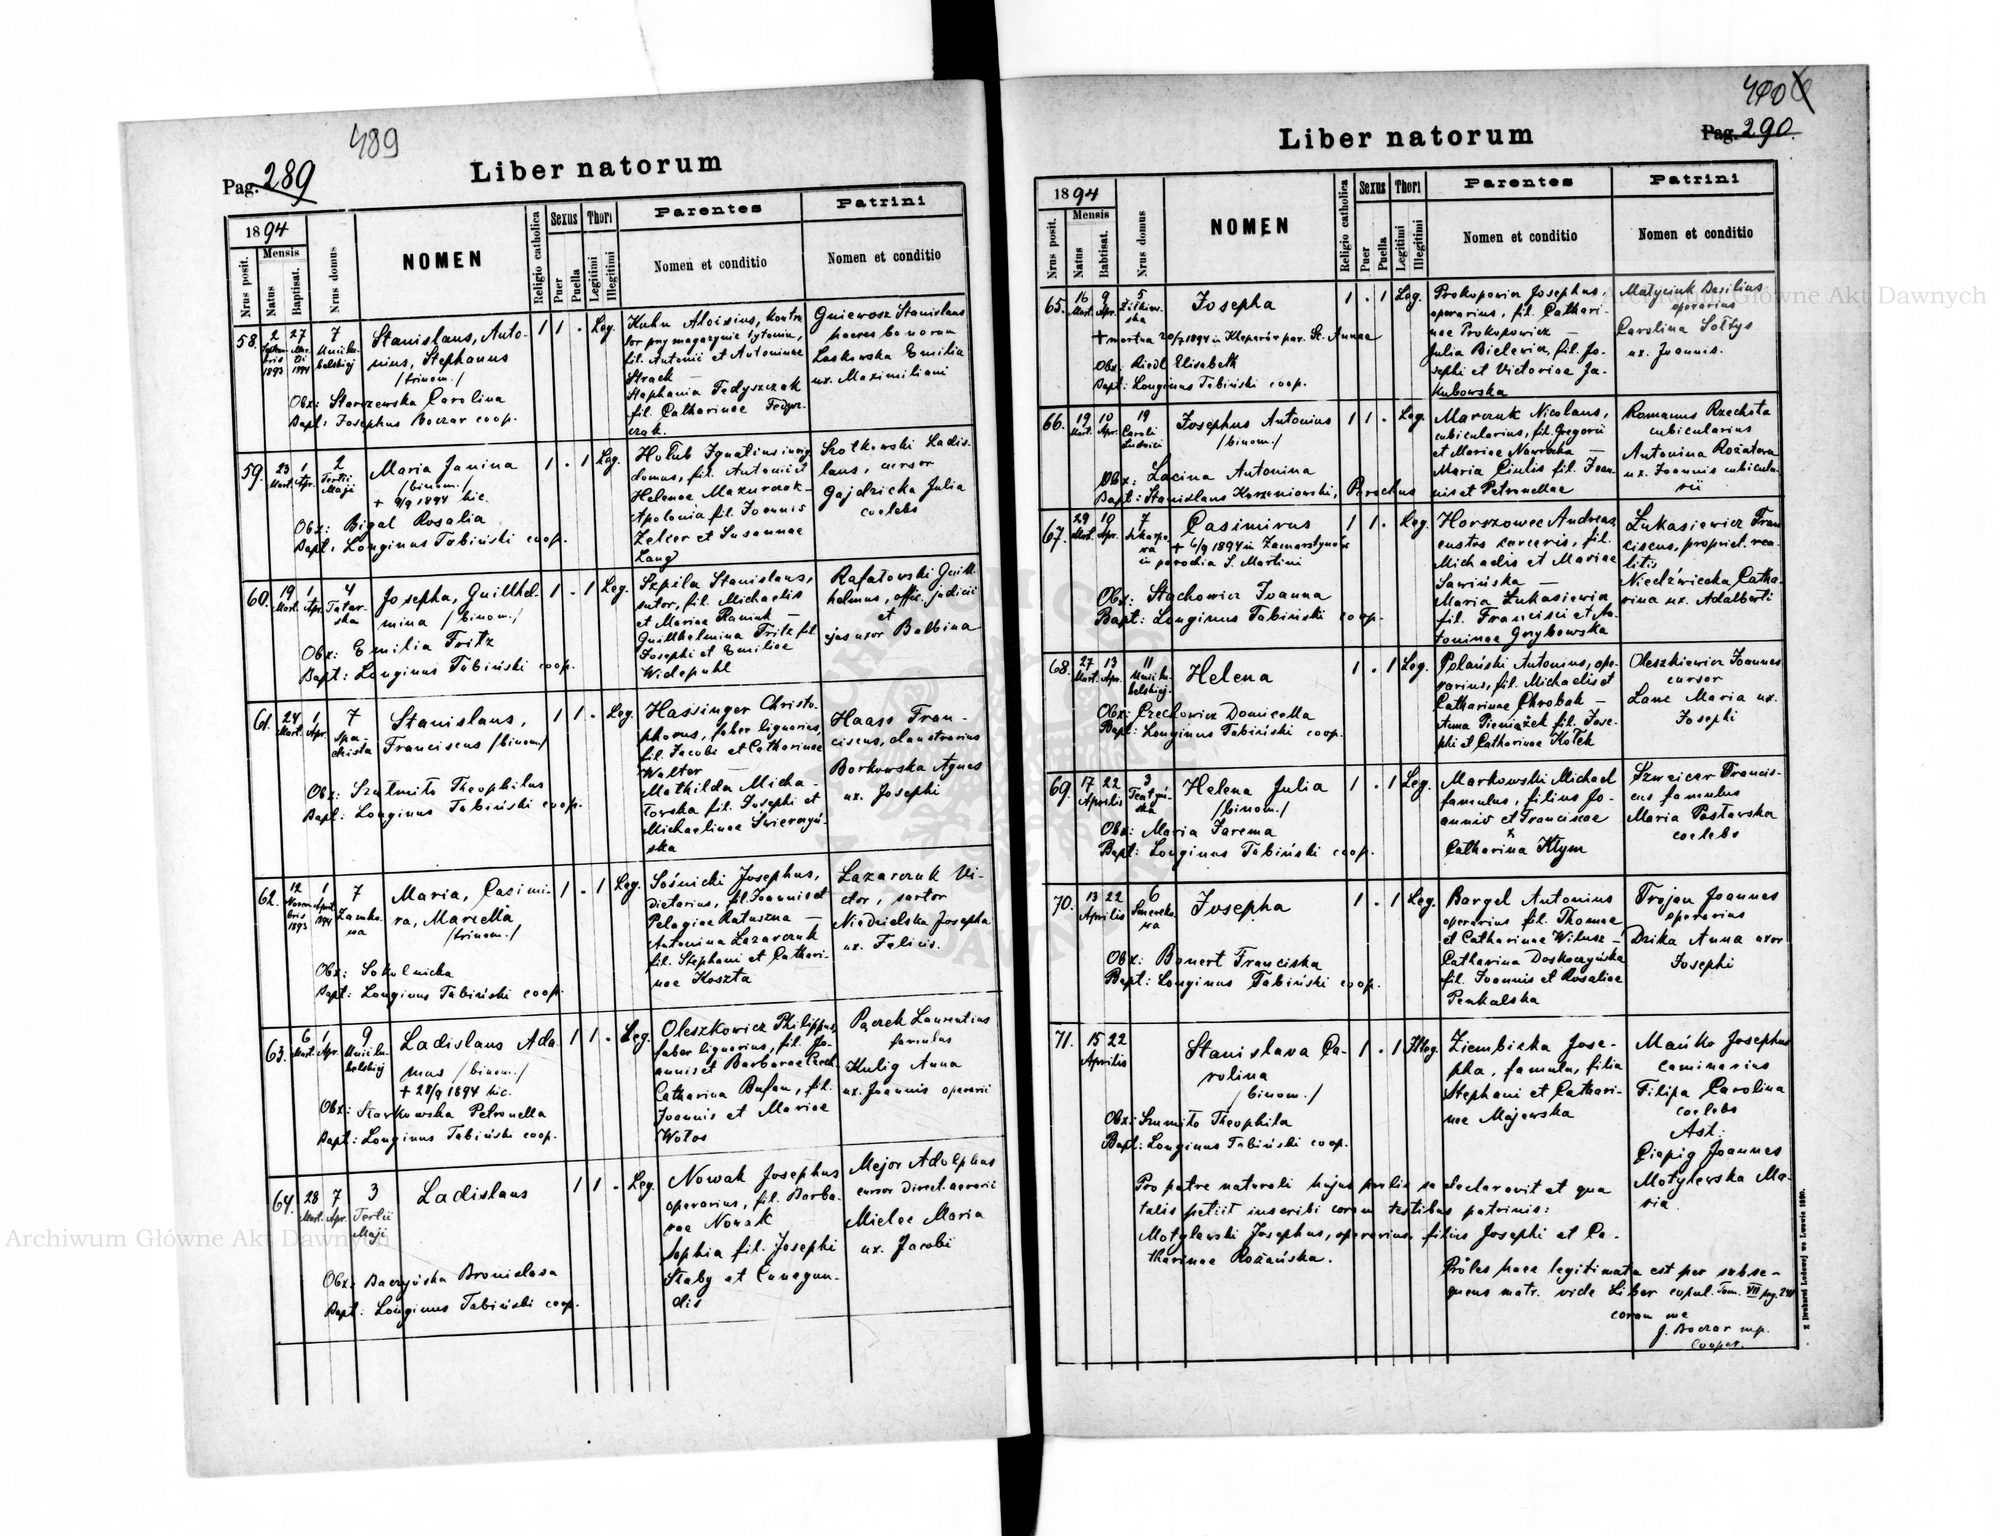 489
Pag. 289
Liber natorum
1894
Mensis
Nrus posit.
Natus
Baptisat.
Nrus domus
NOMEN
Religio catholica
Sexus
Puer
Puella
Thori
Legitimi
Illegitimi
Parentes
Nomen et conditio
Patrini
Nomen et conditio
58.
2
Septem
bris
1893
27
Mar
tii
1894
7
Unii lu-
belskiej
Stanislaus, Anto-
nius, Stephanus
/trinom./
Obx: Starszewska Carolina
Bapt: Josephus Boczar coop.
1 1 . Leg.
Kuhn Aloisius, kontro
lor przy magazynie tytoniu,
fil. Antonii et Antoninae
Strach —
Stephania Fedyszczak
fil. Catharinae Fedysz-
czak.
Gniewosz Stanislaus
haeres bonorum
Laskowska Emilia
ux. Maximiliani
59.
23
Mart.
1
Apr.
2
Tertii
Maji
Maria Janina
/binom./
+ 9/9 1894 hic.
Obx: Bigal Rosalia
Bapt: Longinus Tabiński coop.
1 . 1 Leg.
Hołub Ignatius
domus, fil. Antonii et
Helenae Mazurczak -
Apolonia fil. Joannis
Zelcer et Susannae
Lang
Szotkowski Ladis-
laus, cursor
Gajdzicka Julia
coelebs
60.
19
Mart.
1
Apr.
4
Tatar-
ska
Josepha, Guilhel-
mina /binom./
Obx: Emilia Fritz
Bapt: Longinus Tabiński coop.
1 . 1 Leg.
Szpila Stanislaus,
sutor, fil. Michaelis
et Mariae —
Guilhelmina Fritz fil.
Josephi et Emiliae
Widepuhl
Rafałowski Guil-
helmus, offic. judicii
et
ejus uxor Balbina
61.
24
Mart.
1
Apr.
7
Spa-
dzista
Stanislaus,
Franciscus /binom./
Obx: Szatmiło Theophilus
Bapt: Longinus Tabiński coop.
1 1 . Leg.
Hassinger Christo-
phorus, faber lignarius,
fil. Jacobi et Catharinae
Walter —
Mathilda Micha-
łowska fil. Josephi et
Michaelinae Świerczyń-
ska
Haass Fran-
ciscus, claustrarius
Borkowska Agnes
ux. Josephi
62.
12
Novem
bris
1893
1
April
1894
7
Zamko-
wa
Maria, Casimi-
ra, Marcella
/trinom./
Obx: Sokolnicka
Bapt: Longinus Tabiński coop.
1 . 1 Leg.
Sośnicki Josephus,
dietarius, fil. Joannis et
Pelagiae Ratuszna —
Antonina Lazarczuk
fil. Stephani et Cathari-
nae Koszta
Lazarczuk Vi-
ctor, sartor
Niedzielska Josepha
ux. Felicis.
63.
6
Mart.
1
Apr.
9
Unii lu-
belskiej
Ladislaus Ada-
mus /binom./
+ 28/9 1894 hic.
Obx: Starkowska Petronella
Bapt: Longinus Tabiński coop.
1 1 . Leg.
Oleszkowicz Philippus,
faber lignarius, fil. Jo-
annis et Barbarae
Catharina Bufan, fil.
Joannis et Mariae
Wołos
Pączek Laurentius
famulus
Kulig Anna
ux. Joannis operarii
64.
28
Mart.
7
Apr.
3
Tertii
Maji
Ladislaus
Obx: Baczyńska Bronislava
Bapt: Longinus Tabiński coop.
1 1 . Leg.
Nowak Josephus
operarius, fil. Barba-
rae Nowak
Sophia fil. Josephi
Staby et Cunegun-
dis
Mejor Adolphus
cursor Direct. aerarii
Mielec Maria
ux. Jacobi
490
Pag. 290.
Liber natorum
1894
Mensis
Nrus posit.
Natus
Babtisat.
Nrus domus
NOMEN
Religio catholica
Sexus
Puer
Puella
Thori
Legitimi
Illegitimi
Parentes
Nomen et conditio
Patrini
Nomen et conditio
65.
16
Mart.
9
Apr.
5
Żółkiew-
ska
Josepha
+ mortua 20/7 1894 in Kleparów par. St. Annae
Obx: Riedl Elisabeth
Bapt: Longinus Tabiński coop.
1 . 1 Leg.
Prokopowicz Josephus,
operarius, fil. Cathari-
nae Prokopowicz —
Julia Bielewicz, fil. Jo-
sephi et Victoriae Ja-
kubowska
Matyciuk Basilius
operarius
Carolina Sołtys
ux. Joannis.
66.
19
Mart.
10
Apr.
19
Caroli
Ludovici
Josephus Antonius
/binom./
Obx: Lacina Antonina
Bapt: Stanislaus Korzeniowski, Parochus
1 1 . Leg.
Marczuk Nicolaus,
cubicularius, fil. Gregorii
et Mariae Nawrocka —
Maria Ciulis fil. Joan-
nis et Petronellae
Romanus Rzechota
cubicularius
Antonina Rożatowa
ux. Joannis cubicula-
rii
67.
29
Mart.
10
Apr.
7
Szkarpo-
wa
Casimirus
+ 6/9 1894 in Zamarstynów
in parochia S. Martini
Obx: Stachowicz Joanna
Bapt: Longinus Tabiński coop.
1 1 . Leg.
Horszowec Andreas
custos carceris, fil.
Michaelis et Mariae
Sawińska —
Maria Łukasiewicz
fil. Francisci et An-
toninae Grzybowska
Łukasiewicz Fran
ciscus, propriet. rea-
litis
Niedźwiecka Catha-
rina ux. Adalberti
68.
27
Mart.
13
Apr.
11
Unii lu-
belskiej
Helena
Obx: Czechowicz Domicella
Bapt: Longinus Tabiński coop.
1 . 1 Leg.
Polański Antonius, ope-
rarius, fil. Michaelis et
Catharinae Chrobak —
Anna Pieniążek fil. Jose-
phi et Catharinae Kołek
Oleszkiewicz Joannes
cursor
Lane Maria ux.
Josephi
69.
17 22
Aprilis
3
Teatyń-
ska
Helena Julia
/binom./
Obx: Maria Jarema
Bapt: Longinus Tabiński coop.
1 . 1 Leg.
Markowski Michael
famulus, filius Jo-
annis et Franciscae
x
Catharina Klym
Szweicer Francis-
cus famulus
Maria Postawska
coelebs
70.
13 22
Aprilis
6
Smereko-
wa
Josepha
Obx: Bonert Franciska
Bapt: Longinus Tabiński coop.
1 . 1 Leg.
Bargel Antonius
operarius fil. Thomae
et Catharinae Witusz —
Catharina Doskoczyńska
fil. Joannis et Rosaliae
Penkalska
Trojan Joannes
operarius
Dzika Anna uxor
Josephi
71.
15 22
Aprilis
Stanislava Ca-
rolina
/binom./
Obx: Szumiło Theophila
Bapt: Longinus Tabiński coop.
1 . 1 Illeg.
Ziembicka Jose-
pha, famula, filia
Stephani et Cathari-
nae Majewska
Mańko Josephus
caminarius
Filipa Carolina
coelebs
Ast:
Ciepig Joannes
Motylewska Ma-
ria
Pro patre naturali hujus prolis se declaravit et qua
talis petiit inscribi coram testibus patrinis:
Motylewski Josephus, operarius, filius Josephi et Ca-
tharinae Rożańska.
Proles haec legitimata est per subse-
quens matr. vide Liber copul. Tom. VII pag. 241
coram me
J. Boczar mp.
Cooper.
Z Drukarni Ludowej we Lwowie 1890.
Archiwum Główne Akt Dawnych
Archiwum Główne Akt Dawnych